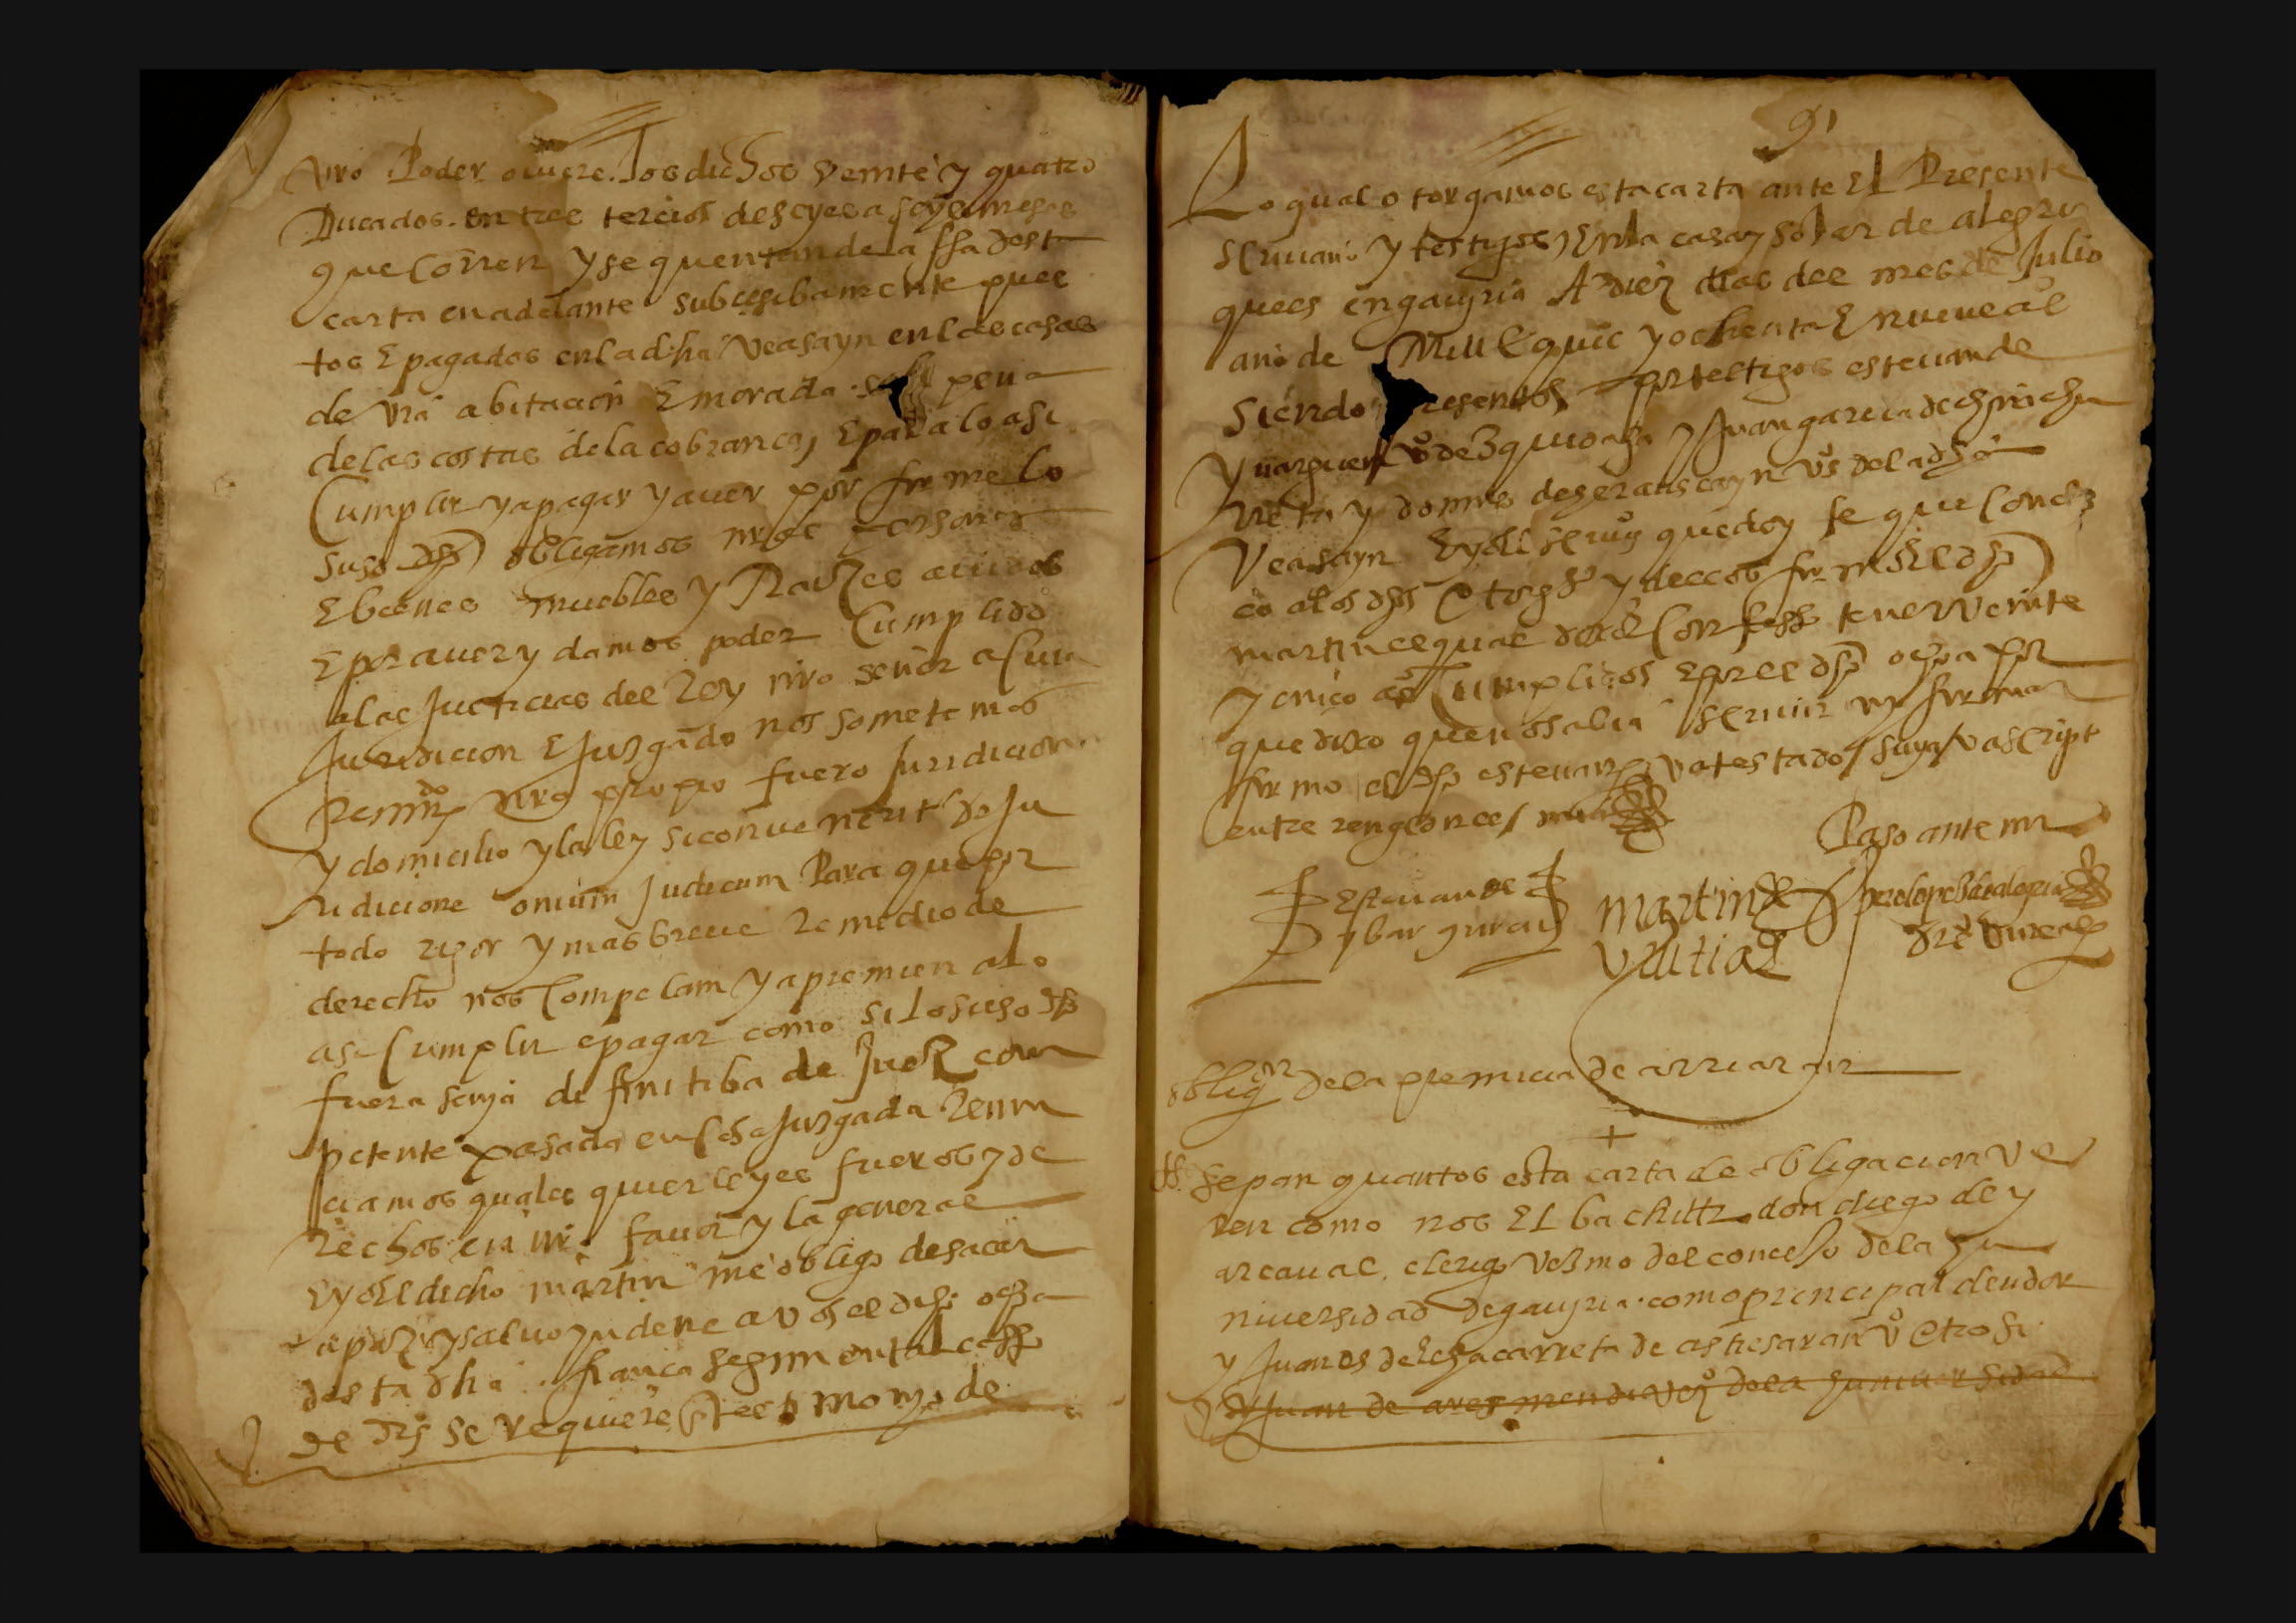 vro Poder ouiere. los dichos veinte y quatro
Ducados. en tres tercios de seyes a seys meses
que corren y se quentan de la ffa desta
carta en adelante subcesibamente pues
tos E pagados en la dha Veasayn en las casas
de vra abitacion E morada pena
de las costas de la cobrança, E para lo asi
Cumplir y a pagar y auer por firme lo
suso dho obligamos nras personas
E bienes muebles y Raizes auidos
E por auer y damos poder Cumplido
a las Justicias del Rey nro señor a Cuia
Juridicion E Juzgado nos sometemos
Renundo nro propio fuero Juridicion
y domicilio y la ley si conuenerit de Ju
ridicione oniun judicum Para que por
todo rigor y mas breue Remedio de
derecho nos Compelan y apremien a lo
asi Cumplir e pagar como si lo suso dho
fuera senja difinitiba de Juez con
petente pasada en Cosa Juzgada Renun
ciamos quales quier leyes fueros y de
Rechos en nro fauor y la general
E yo El dicho martin me obligo de sacar
a paz y a saluo yndene a vos el dicho ochoa
desta dha fiança segun en tal caso
de dro se requiere En testimonyo de
91
Lo qual otorgamos esta carta ante El Presente
Scriuano y testigos, En la casa y solar de alegria
que es en gauyria A diez dias del mes de Julio
año de Mill E quis y ochenta E nueue
siendo presentes por testigos esteuan de
yuarguren vo de Ezquioaga y Juan garcia de
y domis de vos de la dha
Veasayn E yo El scriuo que doy fe que Conoz
co a los dhos Otorgs y dellos firmo El dho
martin el qual dixo Confeso tener veinte
y cinco as Cumplidos E por el dho ochoa por
que dixo que no sabia scriuir ny firmar
firmo el dho esteuan, va testado / suya / va scripto
entre renglones /
Paso ante mi
Esteuan de
ybarguren
martin de
Vrutia
pero lopes de alegria
obligon de la premicia de arriaran
+
Sepan quantos esta carta de obligacion ve
ren como nos El bachiller don diego de y
arcaual clerigo vezino del concejo de la hu
niuersidad de gauyria. como principal deudor
y Juanes de de astiesaran vo Otrosi
Juan de aresmendi vezo de la huniuersidad